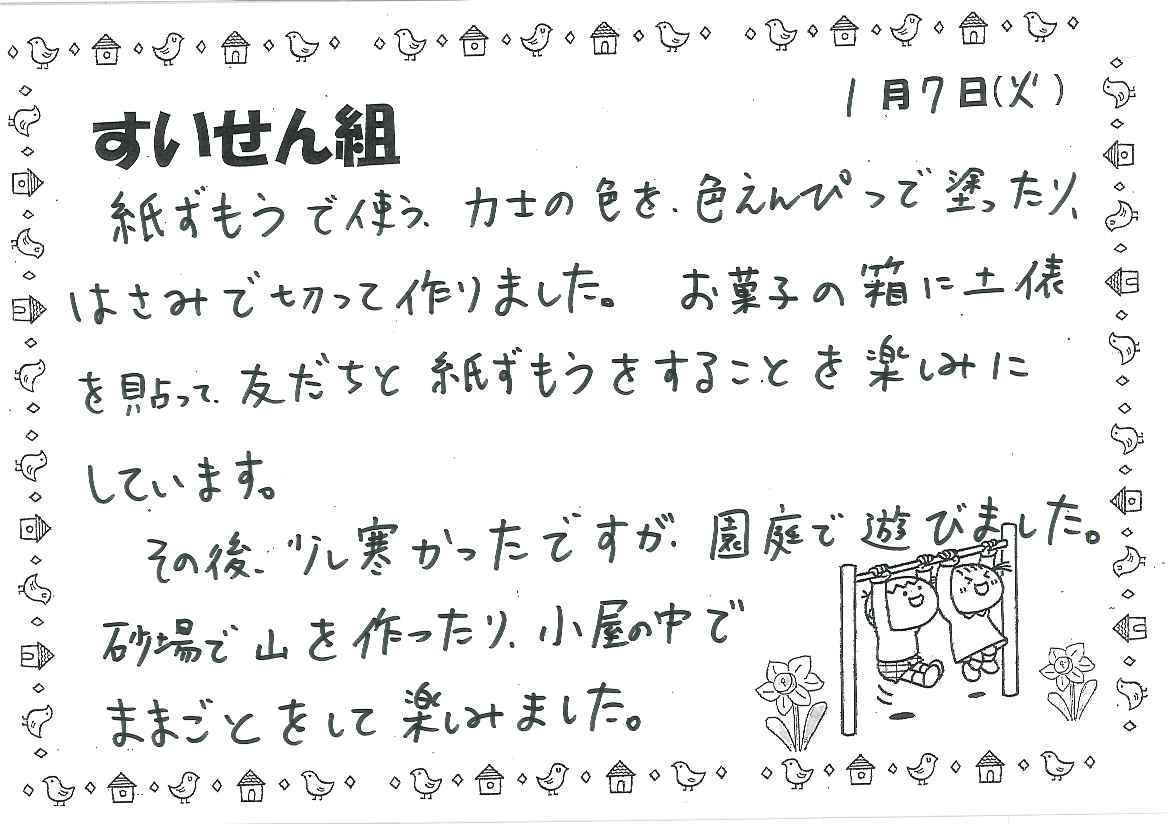 1月7日(火)
すいせん組
紙ずもうで使う、力士の色を、色えんぴつで塗ったり、
はさみで切って作りました。 お菓子の箱に土俵
を貼って、友だちと紙ずもうをすることを楽しみに
しています。
その後、少し寒かったですが、園庭で遊びました。
砂場で山を作ったり、小屋の中で
ままごとをして楽しみました。